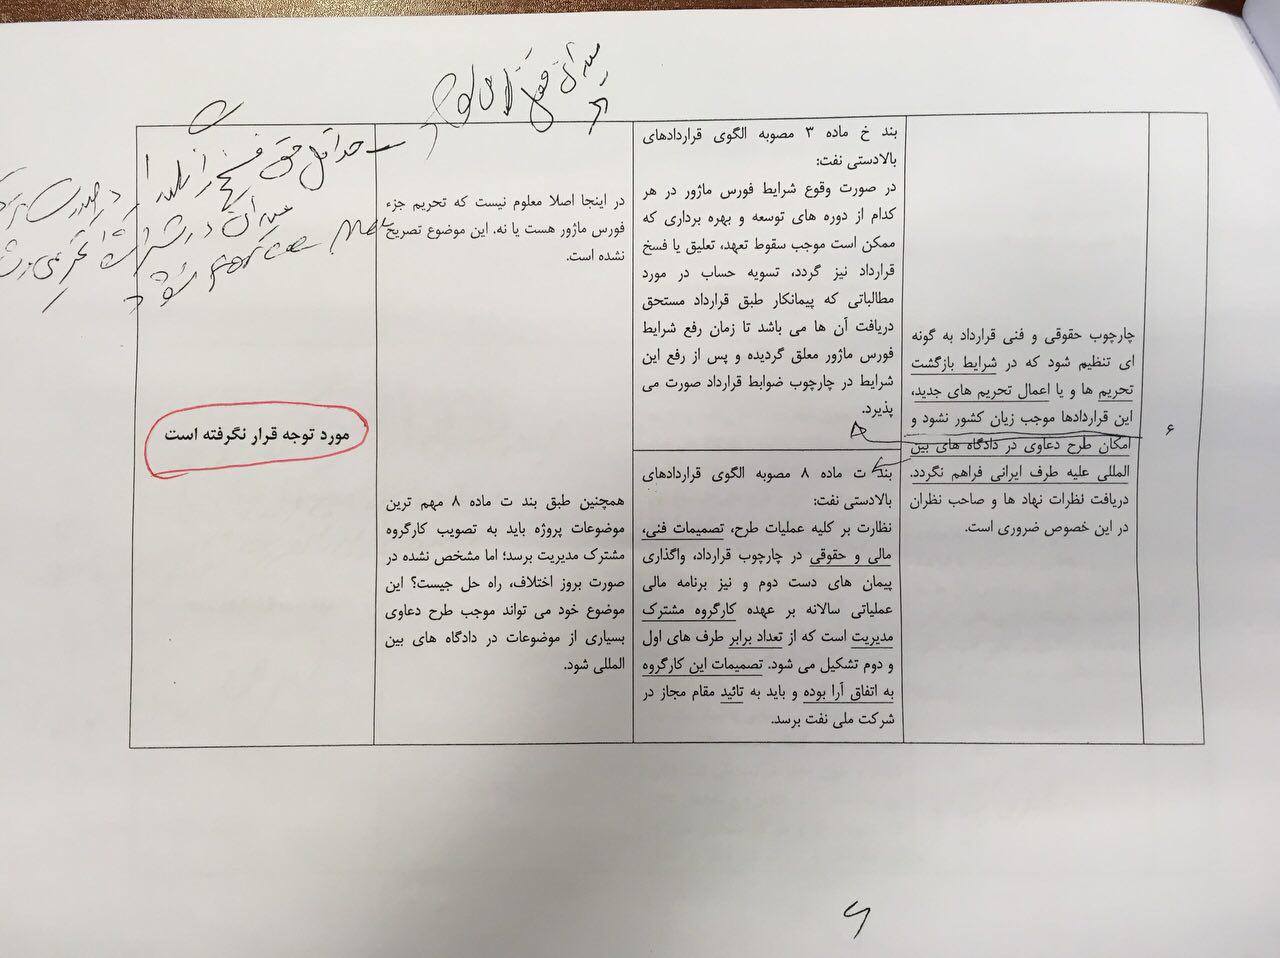 ۶
چارچوب حقوقی و فنی قرارداد به گونه
ای تنظیم شود که در شرایط بازگشت
تحریم ها و یا اعمال تحریم های جدید،
این قراردادها موجب زیان کشور نشود و
امکان طرح دعاوی در دادگاه های بین
المللی علیه طرف ایرانی فراهم نگردد.
دریافت نظرات نهاد ها و صاحب نظران
در این خصوص ضروری است.
بند خ ماده ۳ مصوبه الگوی قراردادهای
بالادستی نفت:
در صورت وقوع شرایط فورس ماژور در هر
کدام از دوره های توسعه و بهره برداری که
ممکن است موجب سقوط تعهد، تعلیق یا فسخ
قرارداد نیز گردد، تسویه حساب در مورد
مطالباتی که پیمانکار طبق قرارداد مستحق
دریافت آن ها می باشد تا زمان رفع شرایط
فورس ماژور معلق گردیده و پس از رفع این
شرایط در چارچوب ضوابط قرارداد صورت می
پذیرد.
بند ت ماده ۸ مصوبه الگوی قراردادهای
بالادستی نفت:
نظارت بر کلیه عملیات طرح، تصمیمات فنی،
مالی و حقوقی در چارچوب قرارداد، واگذاری
پیمان های دست دوم و نیز برنامه مالی
عملیاتی سالانه بر عهده کارگروه مشترک
مدیریت است که از تعداد برابر طرف های اول
و دوم تشکیل می شود. تصمیمات این کارگروه
به اتفاق آرا بوده و باید به تائید مقام مجاز در
شرکت ملی نفت برسد.
در اینجا اصلا معلوم نیست که تحریم جزء
فورس ماژور هست یا نه. این موضوع تصریح
نشده است.
همچنین طبق بند ت ماده ۸ مهم ترین
موضوعات پروژه باید به تصویب کارگروه
مشترک مدیریت برسد؛ اما مشخص نشده در
صورت بروز اختلاف، راه حل چیست؟ این
موضوع خود می تواند موجب طرح دعاوی
بسیاری از موضوعات در دادگاه های بین
المللی شود.
حداقل حق فسخ را
Force Maj
شود
مورد توجه قرار نگرفته است
۶